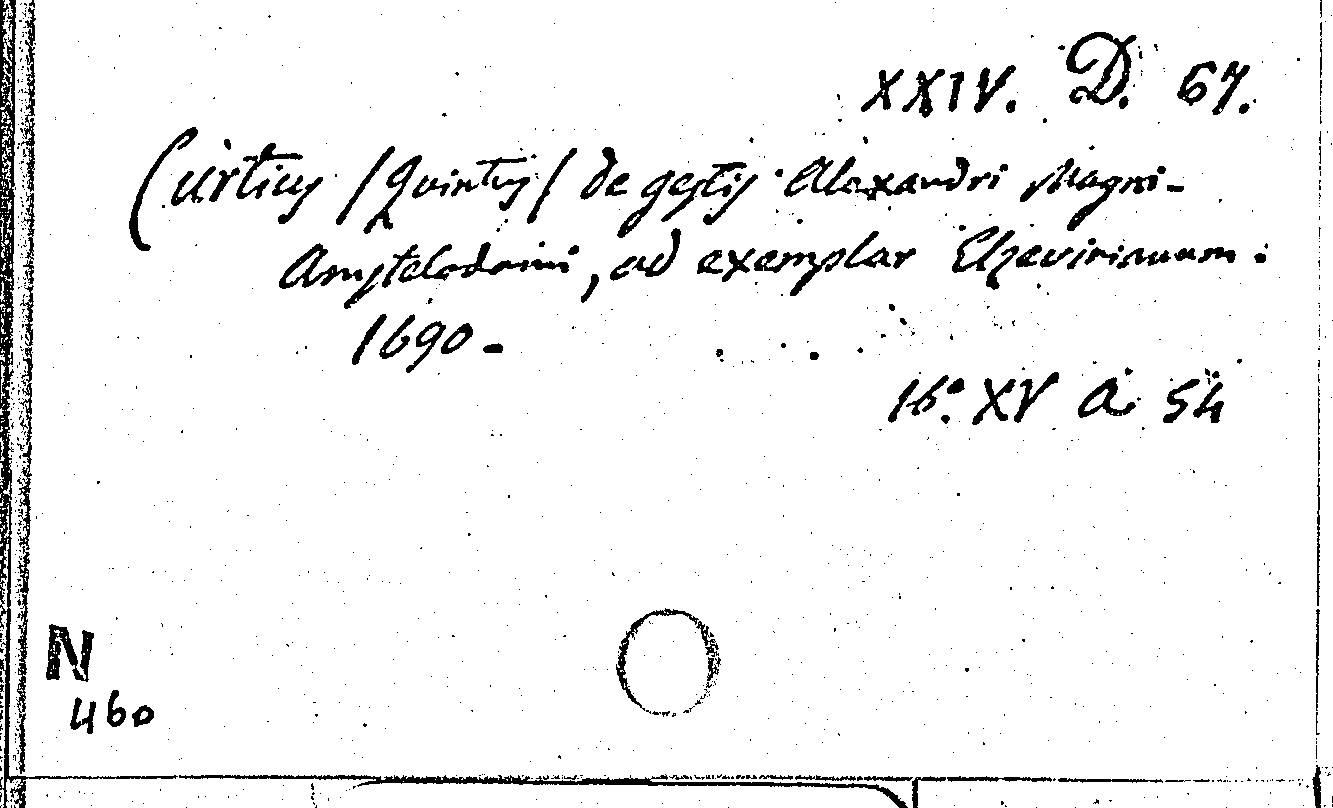 XXIV. D. 67.
Curtius /Quintus/ de gestis Alexandri Magni-
Amstelodami, ad exemplar Elzevirianum.
1690-
16º. XV A 54
N
460